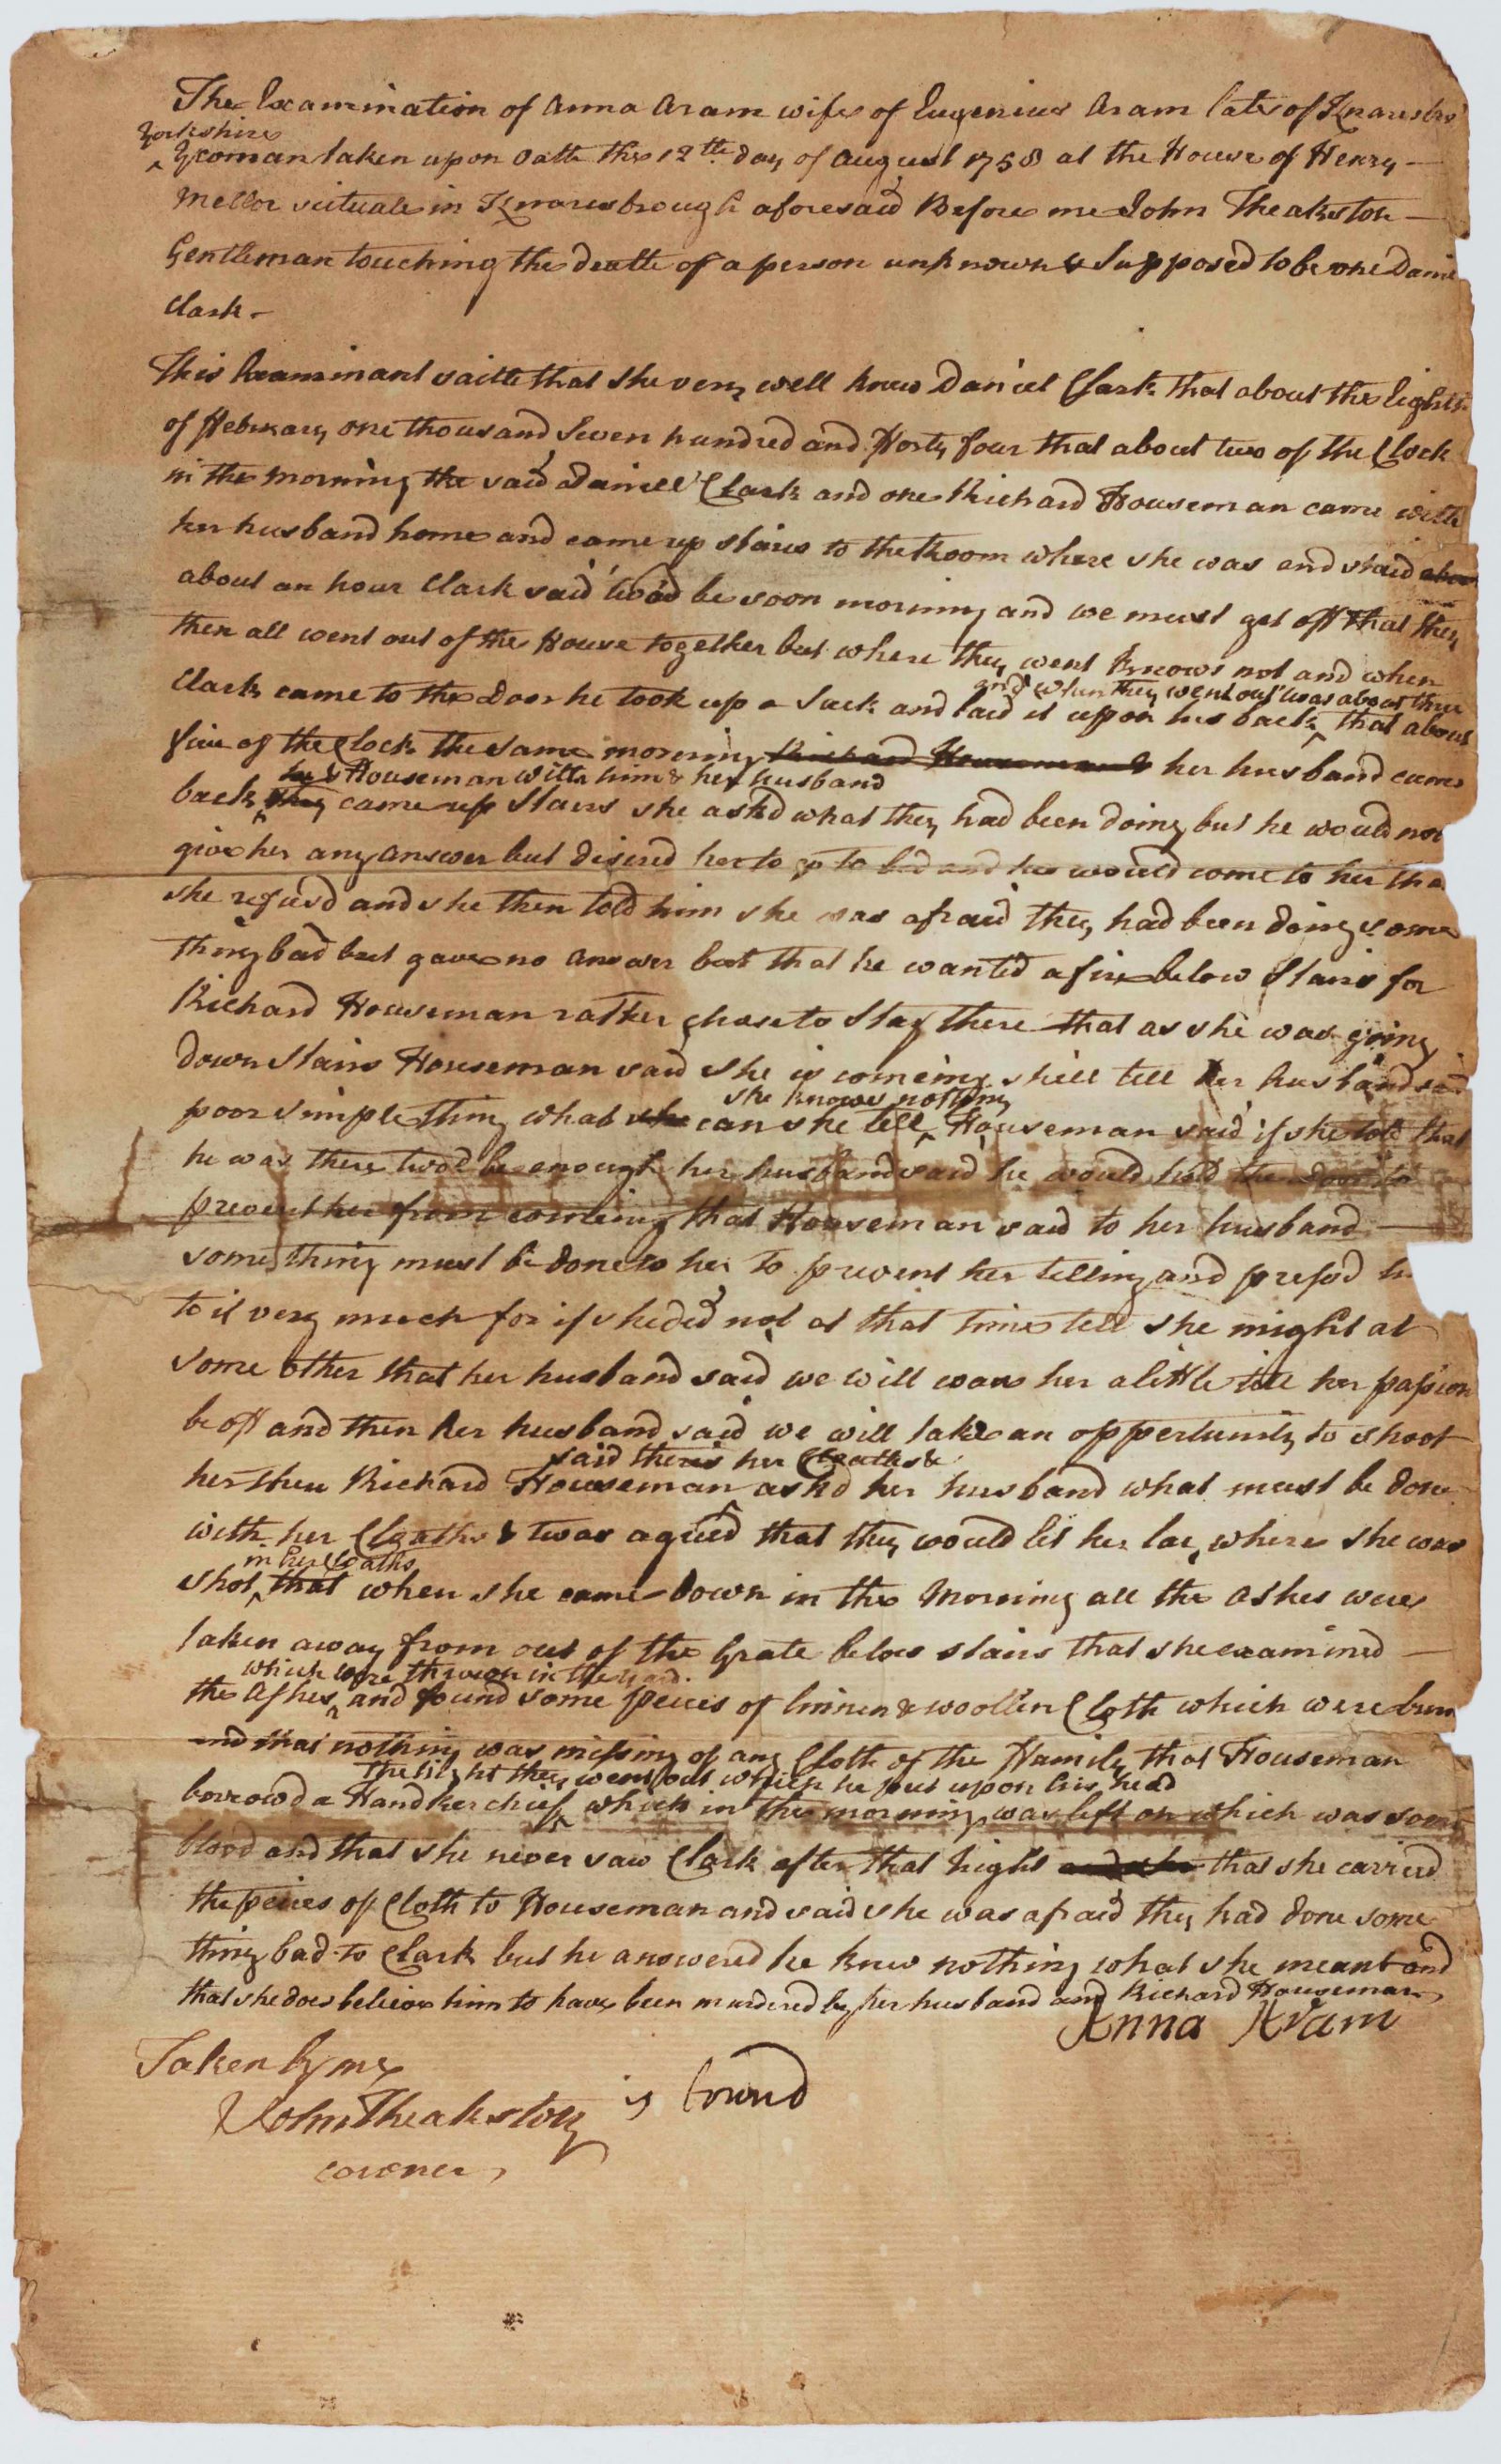 The Examination of Anna Aram wife of Eugenius Aram late of Knaresbro'
Yorkshire
Yeoman taken upon Oath this 12th day of August 1758 at the House of Henry
Mellor scituate in Knaresbrough aforesaid Before me John Theakston
Gentleman touching the death of a person unknown & Supposed to be one Danie
Clark
This Examinant saith that she very well knew Daniel Clark that about the Eighth
of February one thousand Seven hundred and Forty four that about two of the Clock
in the morning the said Daniell Clark and one Richard Houseman came with
her husband home and came up stairs to the Room where she was and staid abou
about an hour Clark said two'd be soon morning and we must get off that they
then all went out of the House together but where they went knows not and when
and when they went out was about three
Clark came to the Door he took up a Sack and laid it upon his back that about
five of the Clock the same morning Richard Houseman & her husband came
he & Houseman with him & her husband
back they came up Stairs she ask'd what they had been doing but he would not
give her any answer but desired her to go to bed and he would come to her tha
she refus'd and she then told him she was afraid they had been doing some
thing bad but gave no answer but that he wanted a fire below Stairs for
Richard Houseman rather chose to Stay there that as she was going
down Stairs Houseman said she is comeing shell tell her husband said
she knows nothing
poor simple thing what she can she tell Houseman said if she told that
he was there twod be enough her husband said he would hold the door to
prevent her from comeing that Houseman said to her husband
something must be done to her to prevent her telling and press'd h
to it very much for if she did not at that time tell she might at
some other that her husband said we will wave her a little till her passion
be off and then her husband said we will take an oppertunity to shoot
said theris her Cloaths &
her then Richard Houseman ask'd her husband what must be done
with her Cloaths & twas agreed that they would let her lae where she was
in her Cloaths
shot that when she came down in the Morning all the Ashes were
taken away from out of the Grate below stairs that she examined
which were thrown in the yard
the Ashes and found some peices of linnen & woollen Cloth which were burn
and that nothing was missing of any Cloth of the Family that Houseman
the night they went out which he put upon his head
borrowd a Handkerchief which in the morning was left on which was some
blood and that she never saw Clark after that night and she that she carried
the peices of Cloth to Houseman and said she was afraid they had done some
thing bad to Clark but he answered he knew nothing what she meant and
that she does believe him to have been murdered by her husband and Richard Houseman
Anna Aram
Taken by me
John Theakston
is bound
coroner